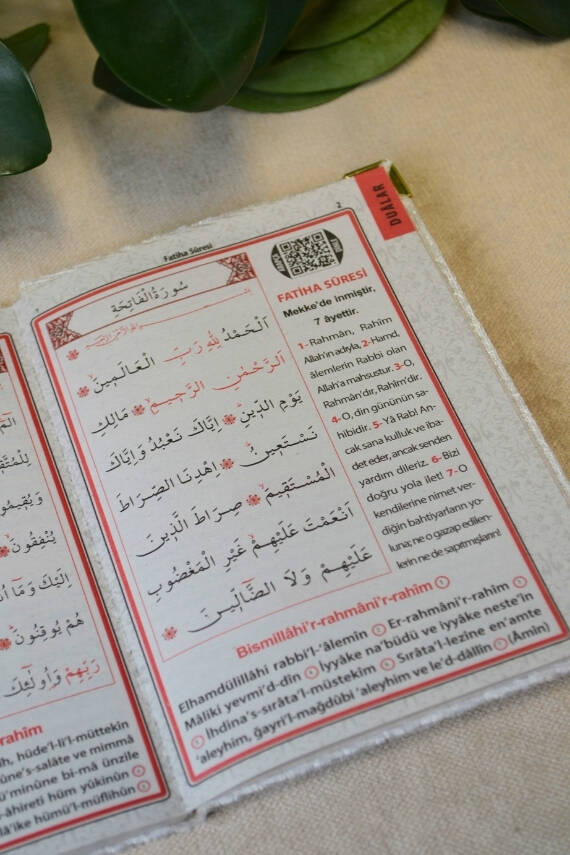 DUÂLAR
2
Fatiha Sûresi
سُورَةُ الْفَاتِحَةِ
اَلْحَمْدُ لِلّٰهِ رَبِّ الْعَالَمِينَ
اَلرَّحْمٰنِ الرَّحِيمِ مَالِكِ
يَوْمِ الدِّينِ اِيَّاكَ نَعْبُدُ وَاِيَّاكَ
نَسْتَعِينُ اِهْدِنَا الصِّرَاطَ
الْمُسْتَقِيمَ صِرَاطَ الَّذِينَ
اَنْعَمْتَ عَلَيْهِمْ غَيْرِ الْمَغْضُوبِ
عَلَيْهِمْ وَلَا الضَّٓالِّينَ
FATİHA SÛRESİ
Mekke'de inmiştir,
7 âyettir.
1-Rahmân, Rahîm
Allah'ın adıyla, 2-Hamd,
âlemlerin Rabbi olan
Allah'a mahsustur. 3-O,
Rahmân'dır, Rahîm'dir.
4-O, din gününün sa-
hibidir. 5- Yâ Rab! An-
cak sana kulluk ve iba-
det eder, ancak senden
yardım dileriz. 6-Bizi
doğru yola ilet! 7-O
kendilerine nimet ver-
diğin bahtiyarların yo-
luna; ne o gazap edilen-
lerin ne de sapıtmışların!
Bismillâhi'r-rahmâni'r-rahîm
Elhamdülillâhi rabbi'l-'âlemîn Er-rahmâni'r-rahîm
Mâliki yevmi'd-dîn İyyâke na'büdü ve iyyâke neste'în
İhdina's-sırâta'l-müstekîm Sırâta'l-lezîne en'amte
'aleyhim, ğayri'l-mağdûbi 'aleyhim ve le'd-dâllîn (Âmîn)
يُنْفِقُونَ
اِلَيْكَ وَمَٓا
هُمْ يُوقِنُونَ
رَبِّهِمْ وَاُو۬لٰٓئِكَ
rahîm
hüde'l-li'l-müttekîn
ûne's-salâte ve mimmâ
ü'minûne bi-mâ ünzile
-âhireti hüm yûkinûn
lâ'ike hümü'l-müflihûn